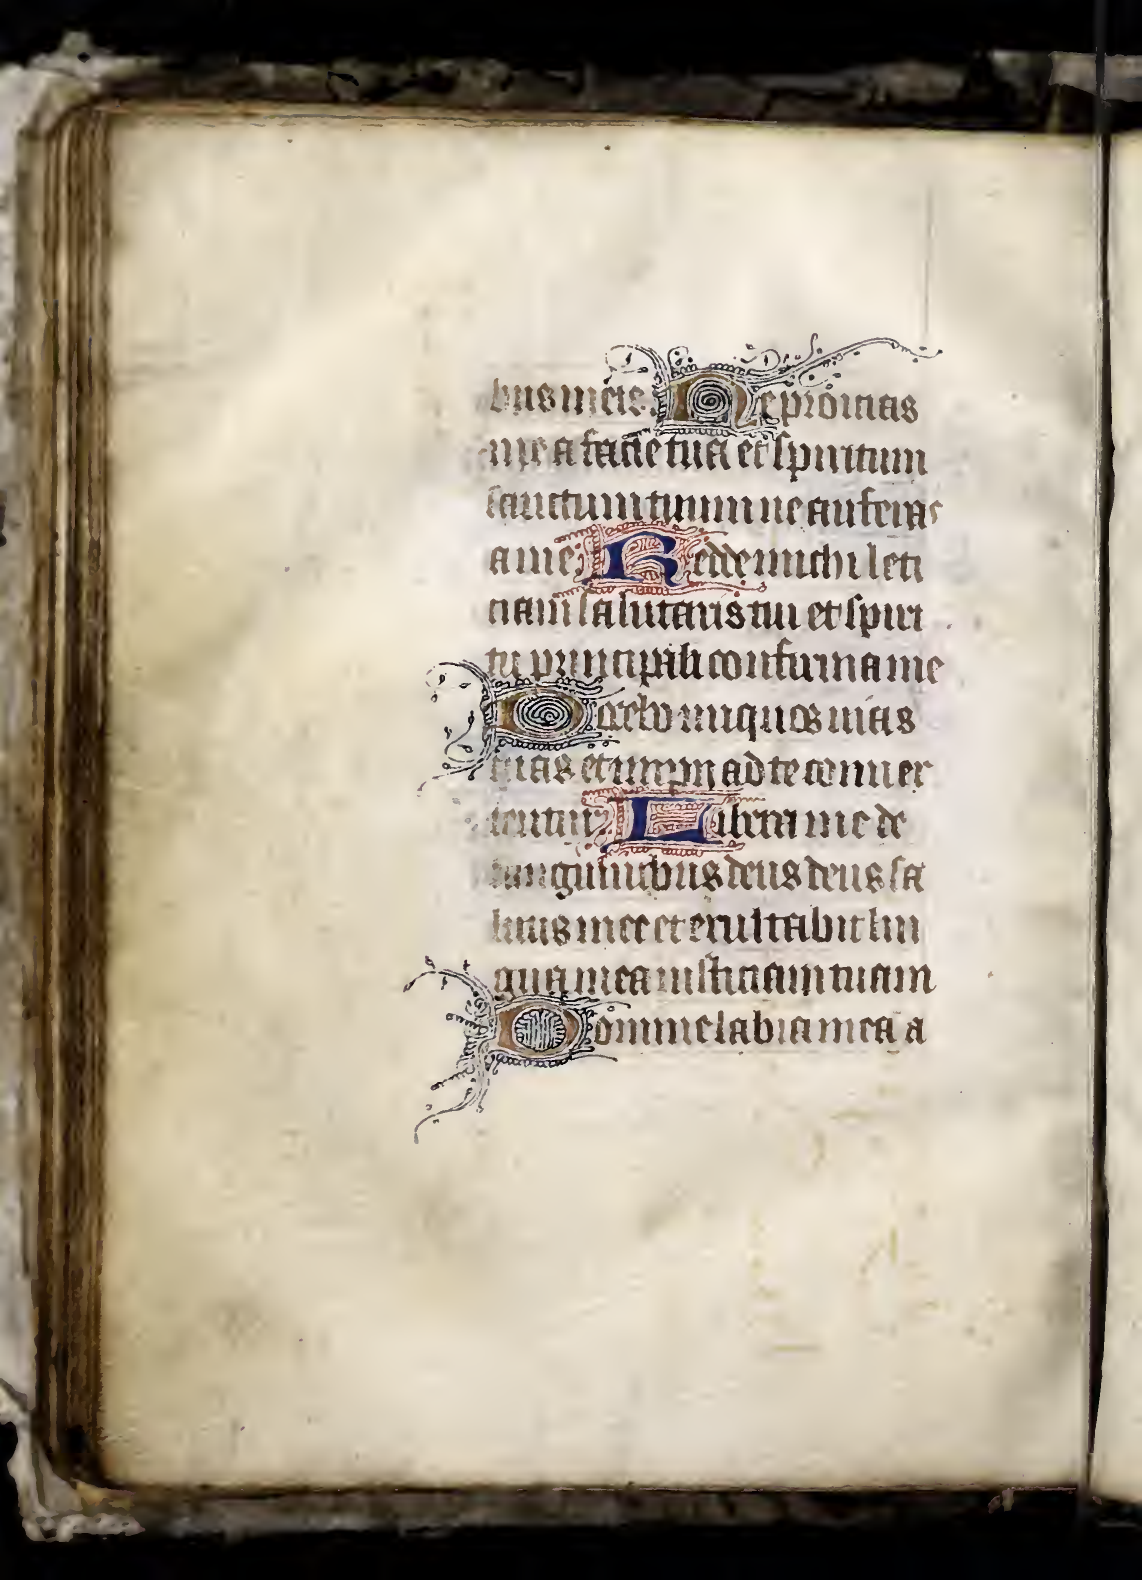 bus meis. Ne proicias
me a facie tua et spiritum
sanctum tuum ne auferas
a me. Redde michi leti
ciam salutaris tui et spiri
tu principali confirma me
Docebo iniquos vias
tuas et impii ad te conuer
tentur. Libera me de
sanguinibus deus deus sa
lutis mee et exultabit lin
gua mea iusticiam tuam
Domine labia mea a